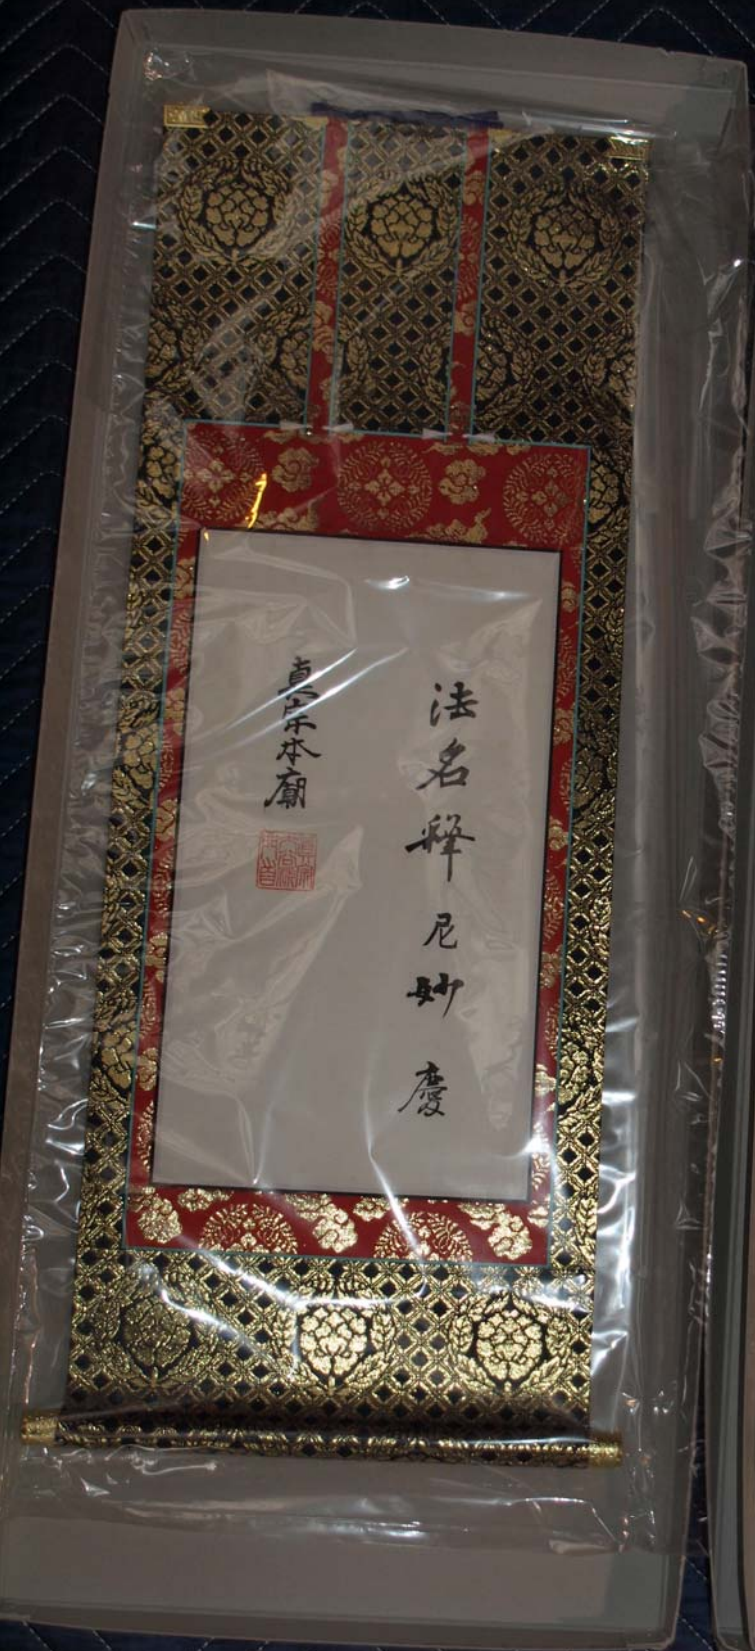 法名釋尼妙慶
真宗本廟